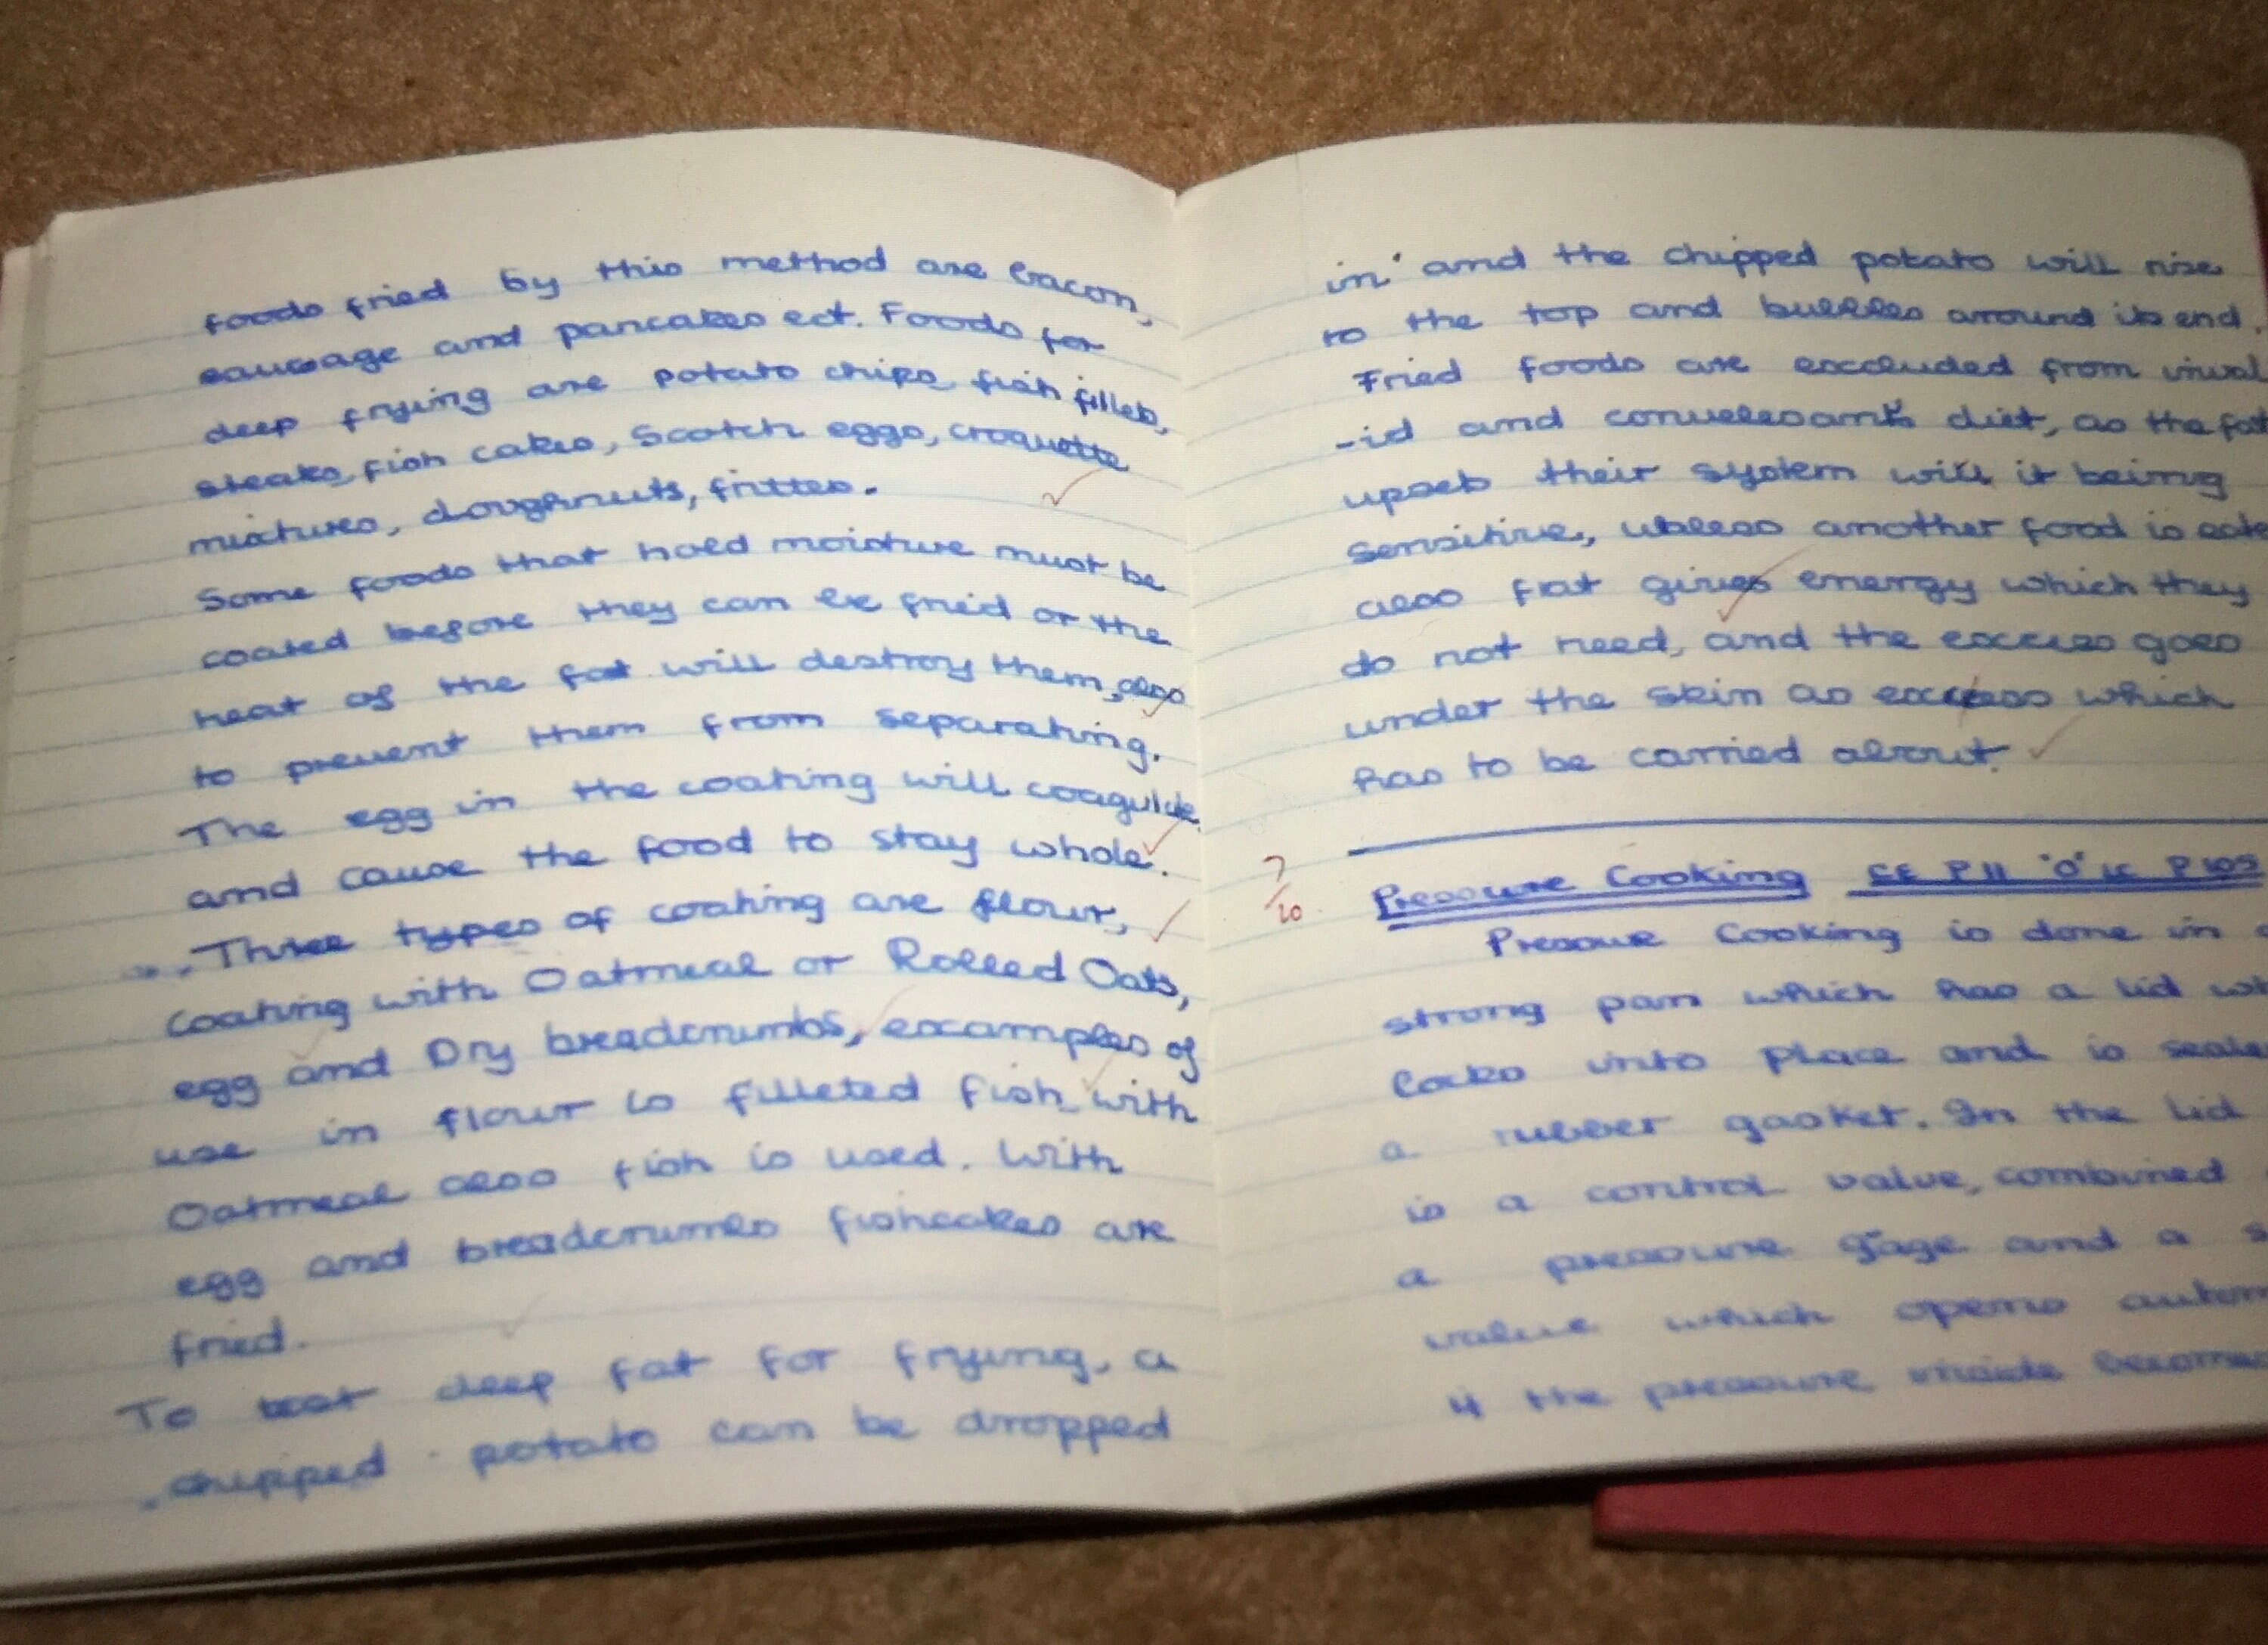 foods fried by this method are bacon,
sausage and pancakes ect. Foods for
deep frying are potato chips, fish fillets,
steaks, fish cakes, Scotch eggs, croquette
mixtures, doughnuts, fritters.
Some foods that hold moisture must be
coated before they can be fried or the
heat of the fat will destroy them, also
to prevent them from separating.
The egg in the coating will coagulate
and cause the food to stay whole.
Three types of coating are flour,
Coating with Oatmeal or Rolled Oats,
egg and Dry breadcrumbs, examples of
use in flour is filleted fish, with
Oatmeal also fish is used. With
egg and breadcrumbs fishcakes are
fried.
To test deep fat for frying, a
chipped potato can be dropped
in and the chipped potato will rise
to the top and bubbles around its end.
Fried foods are excluded from inval
-id and diet, as the fat
upsets their system will it being
sensitive, another food is
also fat gives energy which they
do not need, and the excess goes
under the skin as excess which
has to be carried about.
7/10
Pressure Cooking CE P11 'O' LC P 105
Pressure Cooking is done in
strong pan which has a lid
locks into place and is
a rubber gasket. In the lid
is a control value, combined
a pressure gage and a
value which opens
if the pressure inside